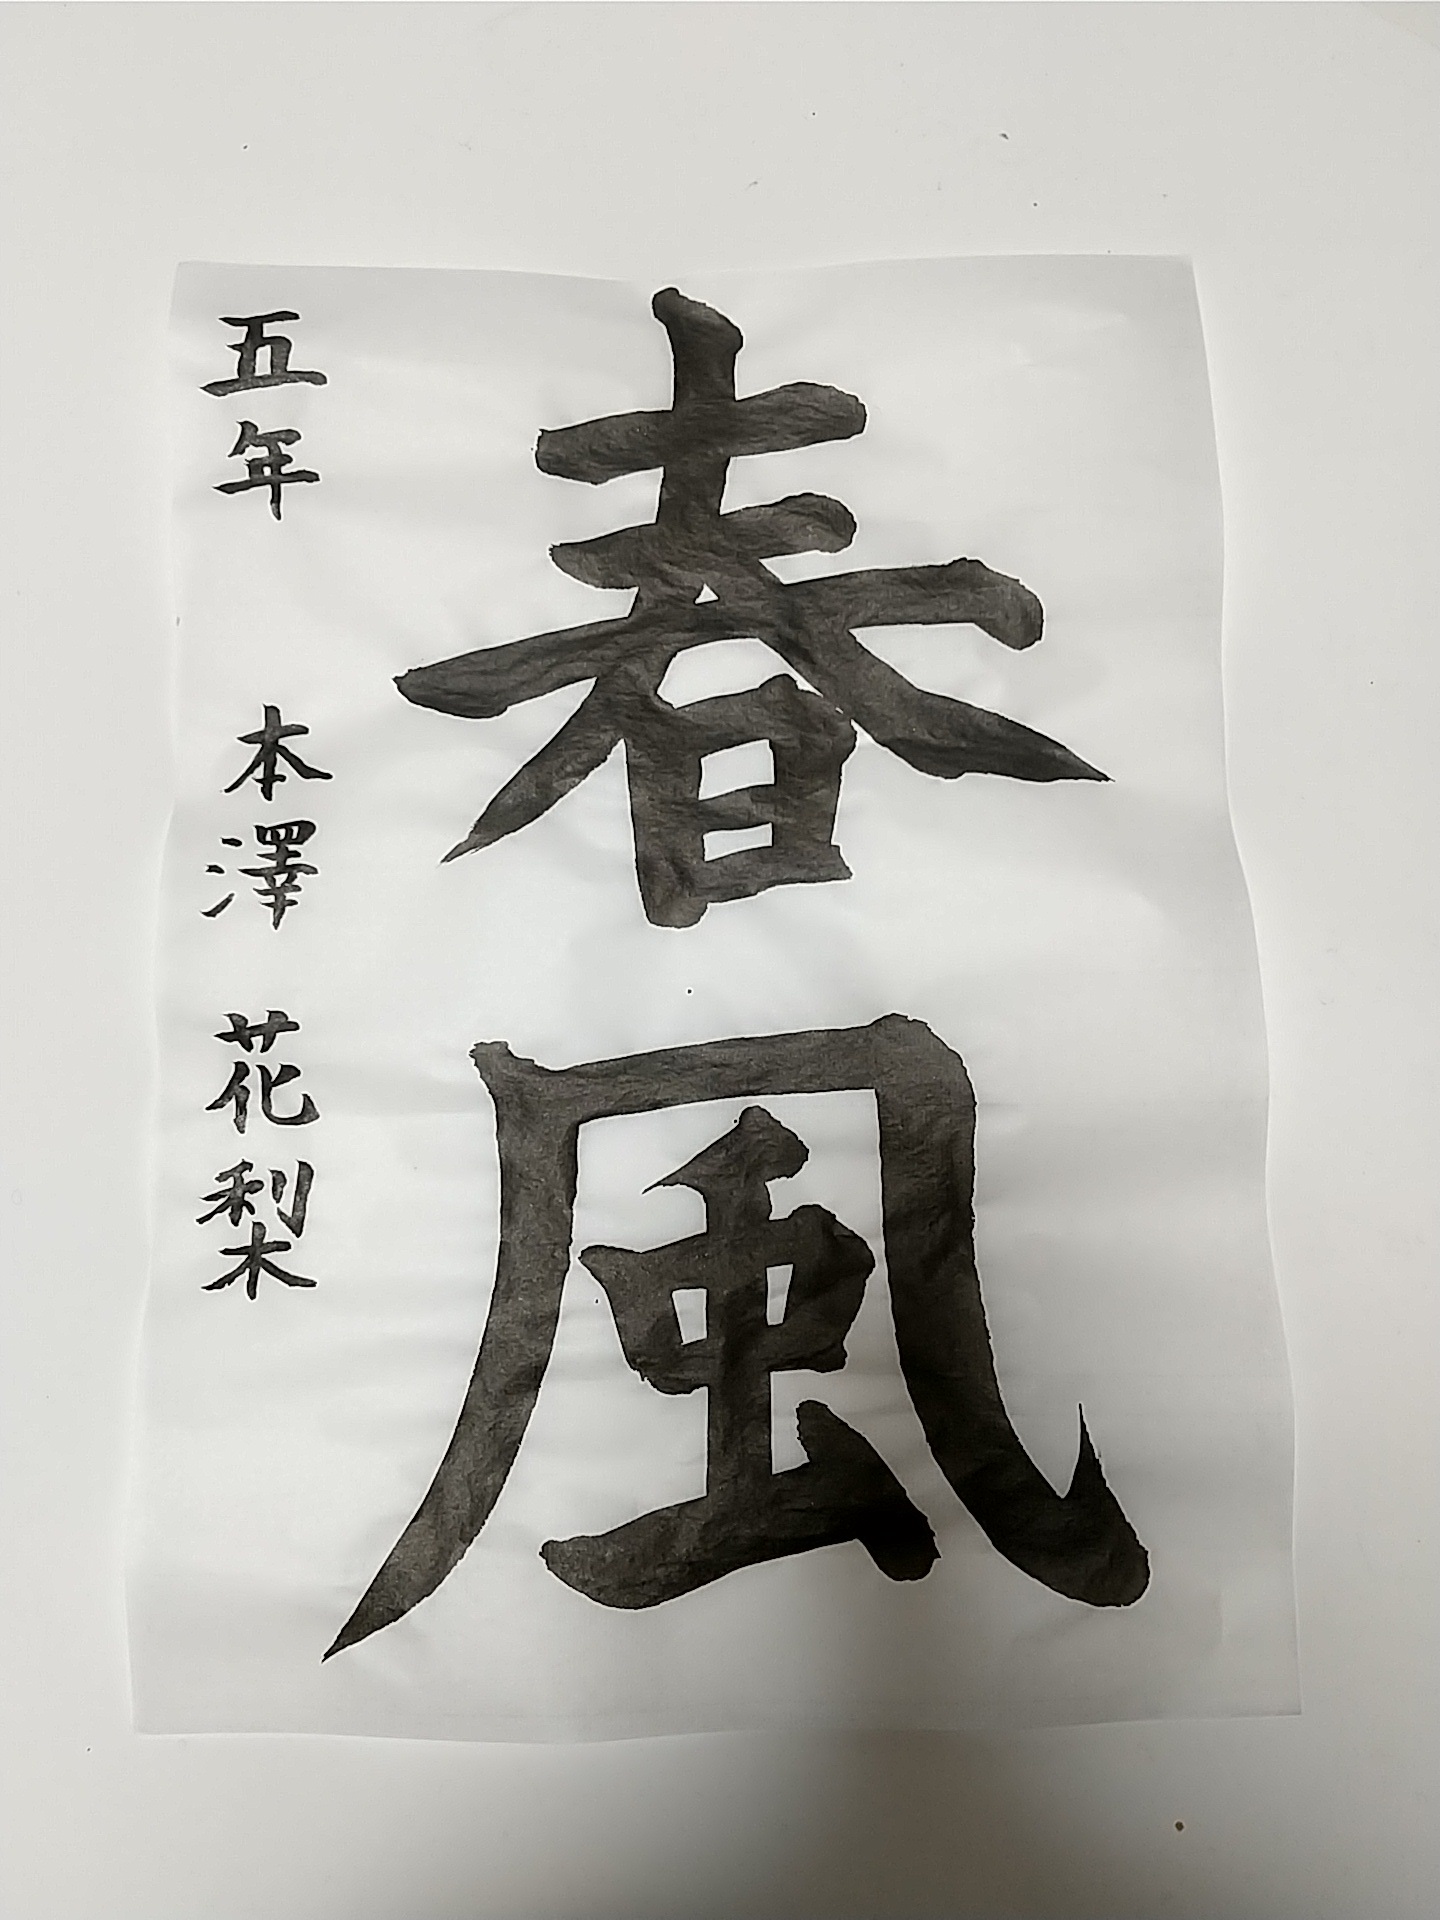 春風
五年 本澤 花梨